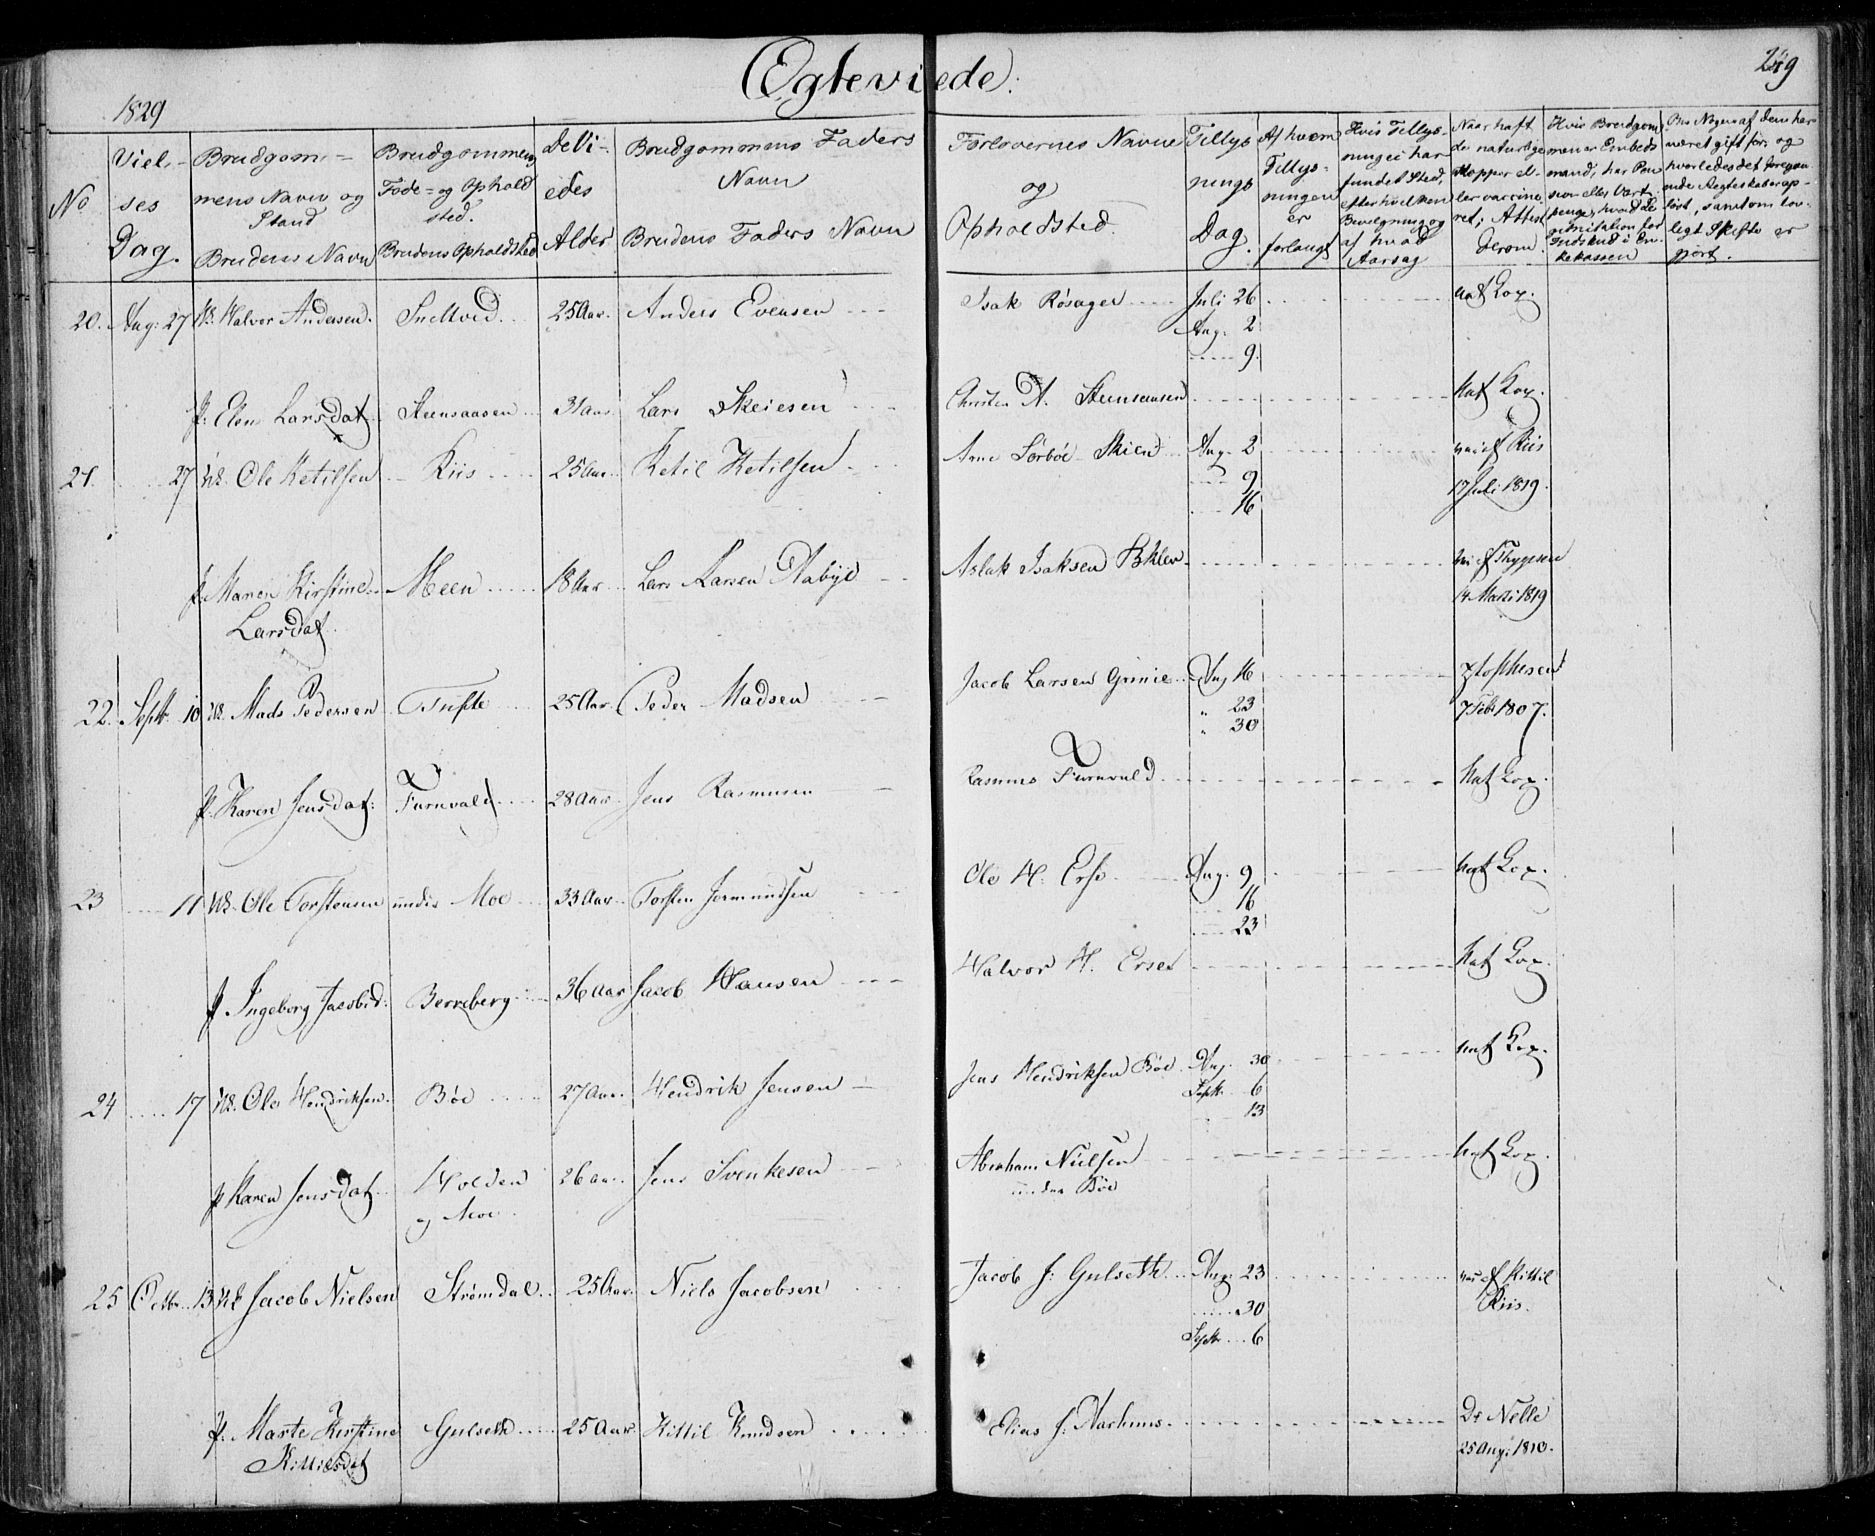 Egteviede.
249
1829
No
Vielses Dag.
Brudgommens Navn og Stand
Brudens Navn
Brudgommens Føde- og Opholdsted.
Brudens Opholdsted
De Viedes Alder
Brudgommens Faders Navn
Brudens Faders Navn
Forlovernes Navne og Opholdsted.
Tillysnings Dag.
Af hvem Tillysningen er forlangt
Hvis Tillysningei har fundet Sted, efter hvilken Bevilgning og af hvad Aarsag
Naar haft de naturlige Kopper eller vaccineret; Attest derom.
Hvis Brudgommen er Embedsmand, har Pension eller Vartpenge, hvad Legitimation for Indskud i Enkekassen
været gift før, og hvorledes det foregaaende Aegteskab er opløst, samt om lovligt Skifte er gjort.
20. Aug: 27 Halvor Andersen. 25 Aar. Anders Evensen Isak Røsager Juli 26 nat Kop.
Aug. 2
9.
p: Elen Larsdat. Steensaasen 31 aar Lars Skeiesen Christen A. Steensaasen nat Kop.
21. 27 Ole Ketilsen Riis 25 Aar Ketil Ketilsen Arne Sørbøe Skien Aug. 2 vac: af Riis
9 17 Juli 1819.
16
p. Maren Kirstine Meen 18 Aar Lars Larsen Aabye Aslak Isaksen vac: af Thygesen
Larsdat. 14 Marts 1819
22. Septr 10 Mads Pedersen Tufte 25 Aar Peder Madsen Jacob Larsen Grinie Aug 16
" 23 7 Febr 1807.
" 30
p. Karen Jensdat: Furuvald 28 Aar Jens Rasmusen Rasmus Furuvald nat Kop.
23 11 Ole Torstensen under Moe 33 Aar Torsten Jermundsen Ole H. Aug. 9 nat Kop.
16
23
p Ingeborg Jacobsd: Berreberg 36 Aar Jacob Hansen Halvor H. nat Kop.
24 17 Ole Hendriksen Bøe 27 Aar Hendrik Jensen Jens Hendriksen Bøe Aug. 30 nat Kop.
Septr 6
13
p Karen Jensdat. Holden 26 aar. Jens Svenkesen Abraham Nielsen nat Kop.
og Moe. under Bøe
25 Octbr. 13 Jacob Nielsen Strømdal 25 Aar. Niels Jacobsen Jacob J: Gulseth Aug: 23 vac: af Kittil
30 Riis.
Septr 6
p. Marte Kirstine Gulseth 25 Aar Kittil Knudsen Elias J: Aarhuus Dr Nelle
Kittilsdat 25 Aug: 1810.